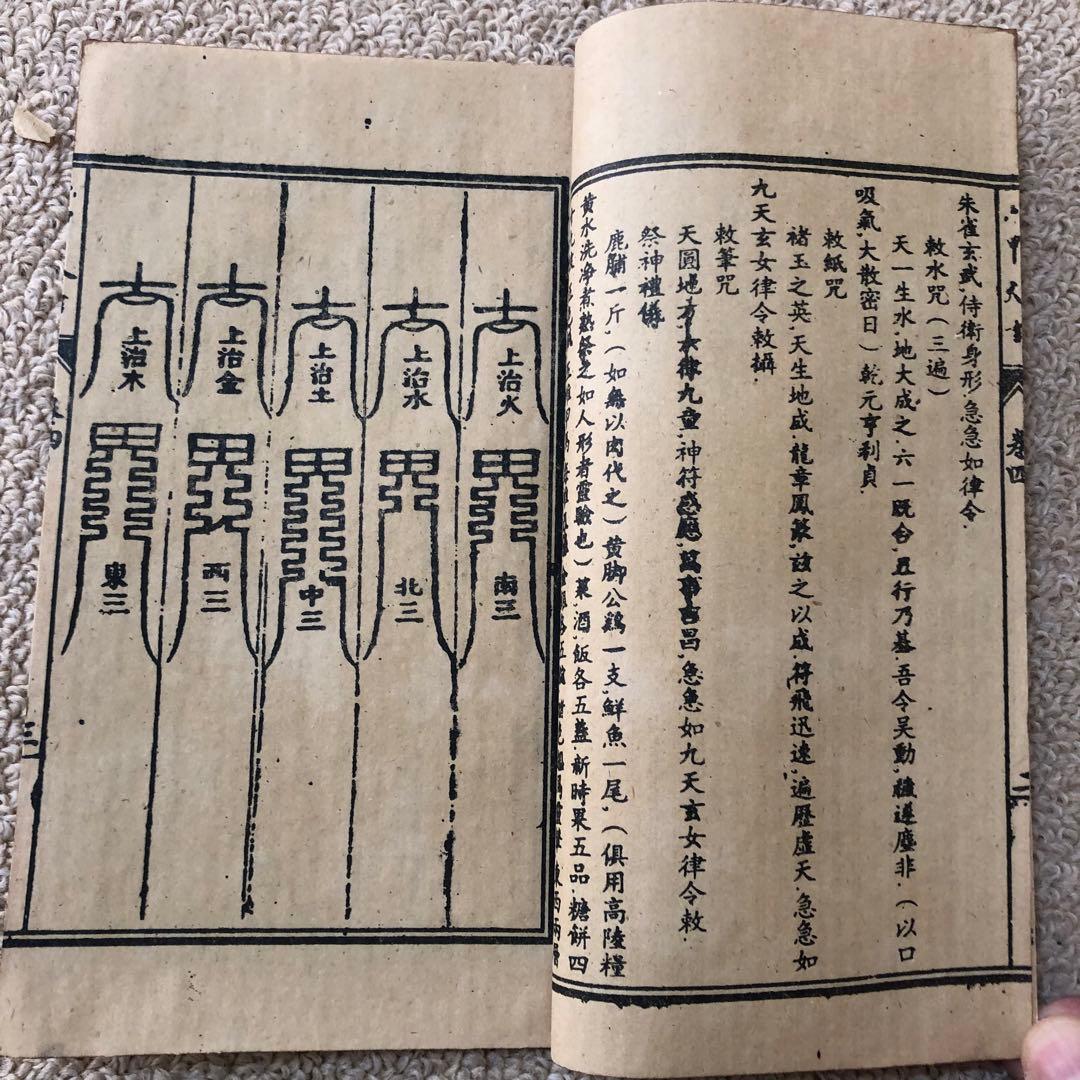 朱雀玄武.侍衛身形.急急如律令.
敕水咒(三遍)
天一生水.地大成之.六一既合.五行乃基.吾令吴動.穢遵塵非.(以口
吸氣.大散密日)乾元亨利貞
敕紙咒
褚玉之英.天生地成.龍章鳳篆.玆之以成.符飛迅速.遍歷虛天.急急如
九天玄女律令敕攝
敕筆咒
天圓地方.六律九章.神符感應.萬事吉昌.急急如九天玄女律令敕.
祭神禮條
鹿脯一斤.(如無以肉代之)黄脚公鷄一支.鮮魚一尾.(俱用高陸糧
黄水洗净煮熟祭之如人形者靈驗也)菓.酒.飯各五盞.新時果五品.糖餅四
卷四
二
上治火
南三
上治水
北三
上治土
中三
上治金
西三
上治木
東三
三